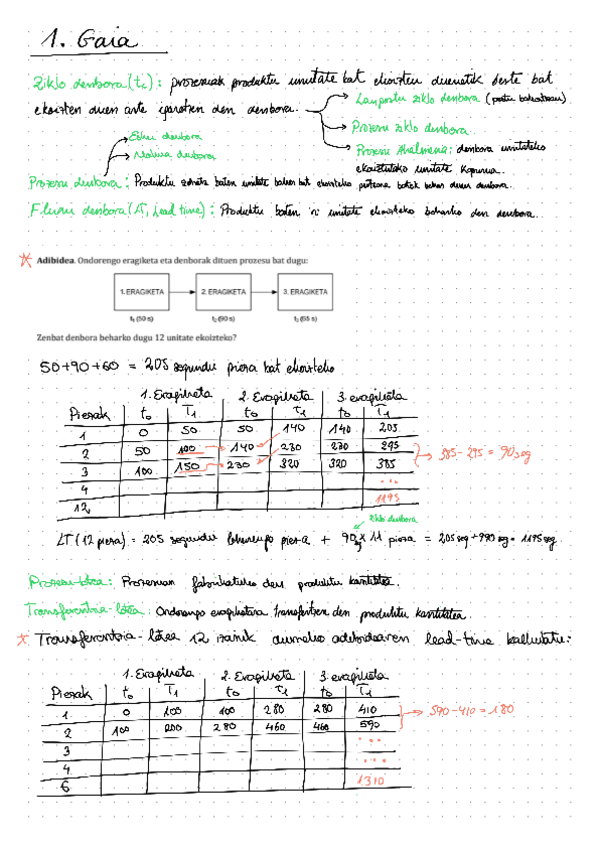 1. Gaia
Ziklo denbora (tc): prozesuak produktu unitate bat ekoizten duenetik beste bat
ekoizten duen arte igarotzen den denbora.
Lanpostu ziklo denbora (postu bakoitzean)
Prozesu ziklo denbora.
Prozesu Ahalmena: denbora unitateko
ekoiztutako unitate kopurua.
Esku denbora
Makina denbora
Prozesu denbora: Produktu zehatz baten unitate bat ekoizteko behar duen denbora.
Fluxu denbora (LT, Lead time): Produktu baten "n" unitate ekoizteko beharko den denbora.
Adibidea. Ondorengo eragiketa eta denborak dituen prozesu bat dugu:
1.ERAGIKETA 2. ERAGIKETA 3. ERAGIKETA
t₁ (50 s) t₂ (90 s) t₃ (65 s)
Zenbat denbora beharko dugu 12 unitate ekoizteko?
50+90+60 = 205 segundu pieza bat ekoizteko
1. Eragiketa 2. Eragiketa 3. eragiketa
Piezak t0 T1 t0 T1 t0 T1
1 0 50 50 140 140 205
2 50 100 140 230 230 295
3 100 150 230 320 320 385
385 - 295 = 90 seg
4 ...
12 1195
ziklo denbora
LT (12 pieza) = 205 segundu lehenengo pieza + 90 x 11 pieza = 205 seg + 990 seg = 1195 seg.
Prozesu-lotea: Prozesuan fabrikatuko den produktu kantitatea.
Transferentzia-lotea: Ondorengo eragiketara transferitzen den produktu kantitatea
Transferentzia-lotea 12 izanik aurreko adibidearen lead-time kalkulatu:
1. Eragiketa 2. Eragiketa 3. eragiketa
Piezak t0 T1 t0 T1 t0 T1
1 0 100 100 280 280 410
2 100 200 280 460 460 590
590 - 410 = 180
3 ...
4 ...
6 1310